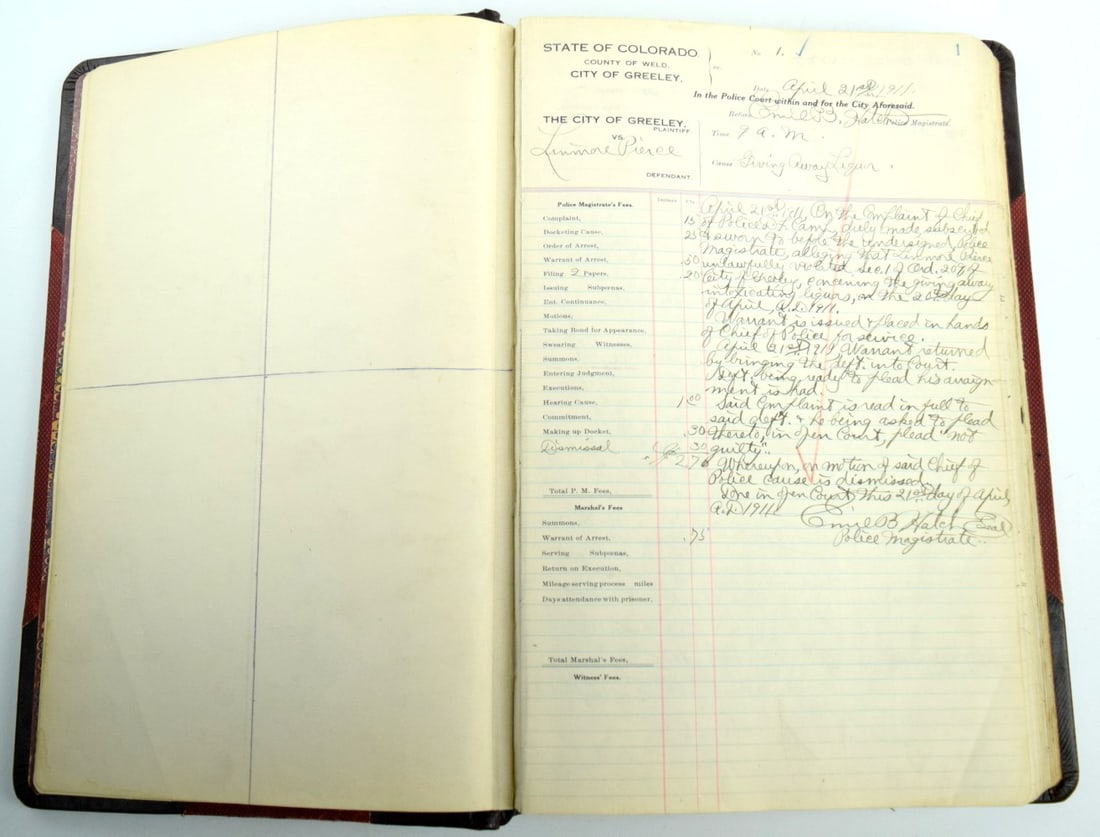 STATE OF COLORADO
COUNTY OF WELD,
CITY OF GREELEY,
ss.
No. 1.
1
Date, April 21st, 1911.
In the Police Court within and for the City Aforesaid.
Before Emil B. Hatch Police Magistrate.
THE CITY OF GREELEY,
PLAINTIFF
VS.
Linmore Pierce
DEFENDANT
Time 9 A. M.
Cause Giving Away Liquor.
Police Magistrate's Fees.
Complaint, 15
Docketing Cause, 25
Order of Arrest,
Warrant of Arrest, .50
Filing 2 Papers, 20
Issuing Subpœnas,
Ent. Continuance,
Motions,
Taking Bond for Appearance,
Swearing Witnesses,
Summons,
Entering Judgment,
Executions,
Hearing Cause, 1 00
Commitment,
Making up Docket, .30
Dismissal 30
2 70
Total P. M. Fees,
Marshal's Fees
Summons,
Warrant of Arrest, .75
Serving Subpœnas,
Return on Execution,
Mileage serving process miles
Days attendance with prisoner,
Total Marshal's Fees,
Witness' Fees.
April 21st, 1911 On the Complaint of Chief
of Police Camp, duly made, subscribed
& sworn to before the undersigned Police
Magistrate, alleging that Linmore Pierce
unlawfully violated Sec. 1 of Ord. 208 of
City of Greeley, concerning the giving away
intoxicating liquors, on the 20th day
of April, A.D. 1911.
Warrant is issued & placed in hands
of Chief of Police for service.
April 21st 1911 Warrant returned
by bringing the deft. into Court.
Deft. being ready to plead his arraign-
ment is had.
Said Complaint is read in full to
said deft. & he being asked to plead
thereto, in open Court, plead "not
guilty".
Whereupon, on motion of said Chief of
Police cause is dismissed.
Done in open Court, this 21st day of April,
A.D. 1911.
Emil B. Hatch Seal
Police Magistrate.